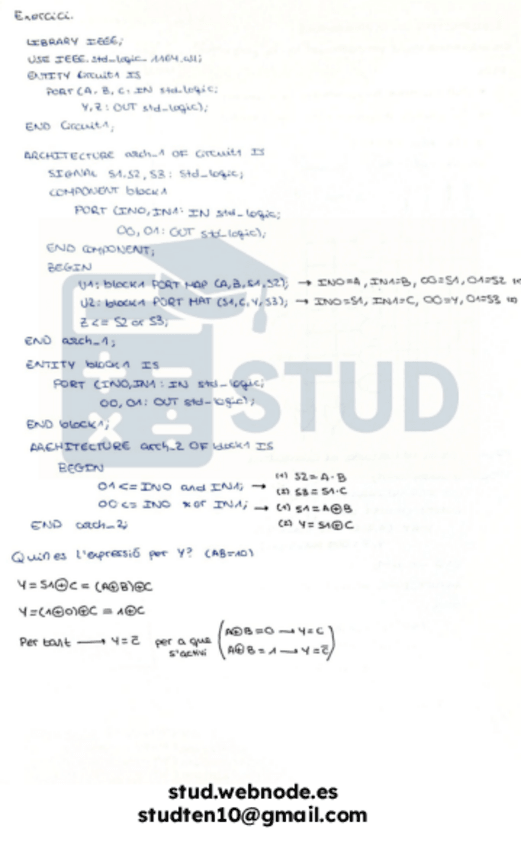 Exercici.
LIBRARY IEEE;
USE IEEE.std_logic_1164.all;
ENTITY Circuit1 IS
PORT (A, B, C: IN std_logic;
Y, Z: OUT std_logic);
END Circuit1;
ARCHITECTURE arch_1 OF Circuit1 IS
SIGNAL S1, S2, S3: std_logic;
COMPONENT block1
PORT (IN0, IN1: IN std_logic;
O0, O1: OUT std_logic);
END COMPONENT;
BEGIN
U1: block1 PORT MAP (A,B,S1,S2); → IN0=A, IN1=B, O0=S1, O1=S2 (1)
U2: block1 PORT MAT (S1,C,Y,S3); → IN0=S1, IN1=C, O0=Y, O1=S3 (2)
Z <= S2 or S3;
END arch_1;
ENTITY block1 IS
PORT (IN0, IN1: IN std_logic;
O0, O1: OUT std_logic);
END block1;
ARCHITECTURE arch_2 OF block1 IS
BEGIN
O1 <= IN0 and IN1; → (1) S2=A·B
(2) S3=S1·C
O0 <= IN0 xor IN1; → (1) S1=A⊕B
(2) Y=S1⊕C
END arch_2;
Quin es l'expressió per Y? (AB=10)
Y=S1⊕C = (A⊕B)⊕C
Y=(1⊕0)⊕C = 1⊕C
Per tant → Y=C̅ per a que s'activi (A⊕B=0 → Y=C
A⊕B=1 → Y=C̅)
STUD
stud.webnode.es
studten10@gmail.com